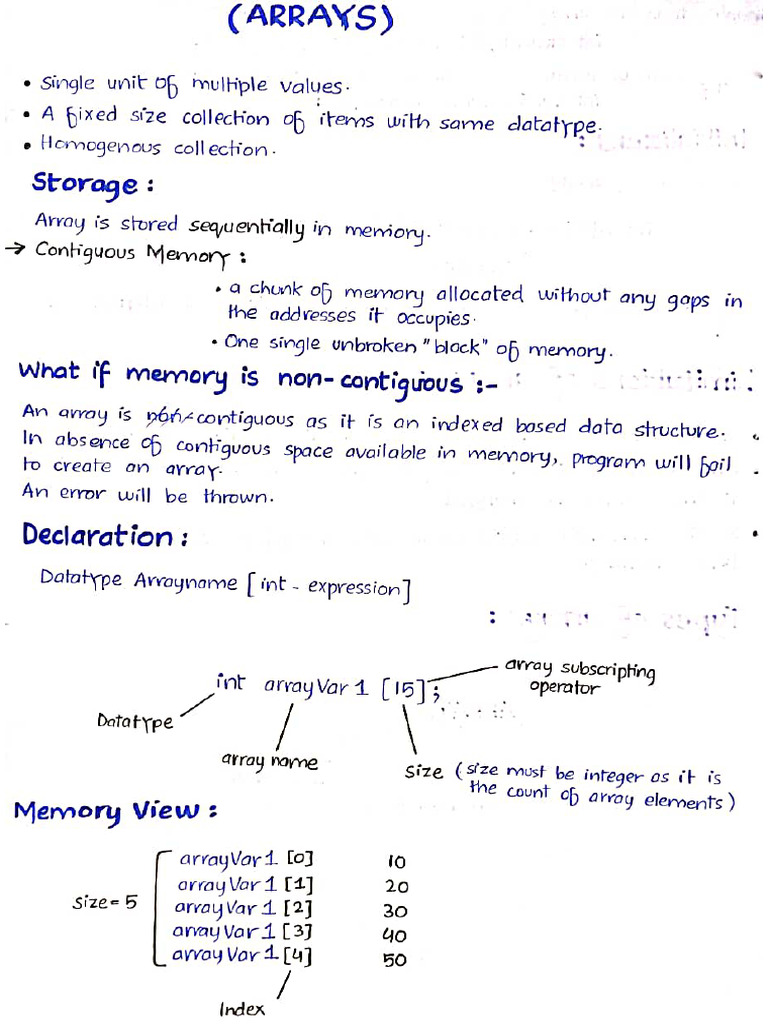 (ARRAYS)
• Single unit of multiple values.
• A fixed size collection of items with same datatype.
• Homogenous collection.
Storage :
Array is stored sequentially in memory.
→ Contiguous Memory :
• a chunk of memory allocated without any gaps in
the addresses it occupies.
• One single unbroken "block" of memory.
What if memory is non-contiguous :-
An array is contiguous as it is an indexed based data structure.
In absence of contiguous space available in memory, program will fail
to create an array.
An error will be thrown.
Declaration :
Datatype Arrayname [int - expression]
int arrayVar 1 [15];
array subscripting
operator
Datatype
array name
Size (size must be integer as it is
the count of array elements)
Memory View :
arrayVar 1 [0] 10
arrayVar 1 [1] 20
size = 5 arrayVar 1 [2] 30
arrayVar 1 [3] 40
arrayVar 1 [4] 50
Index